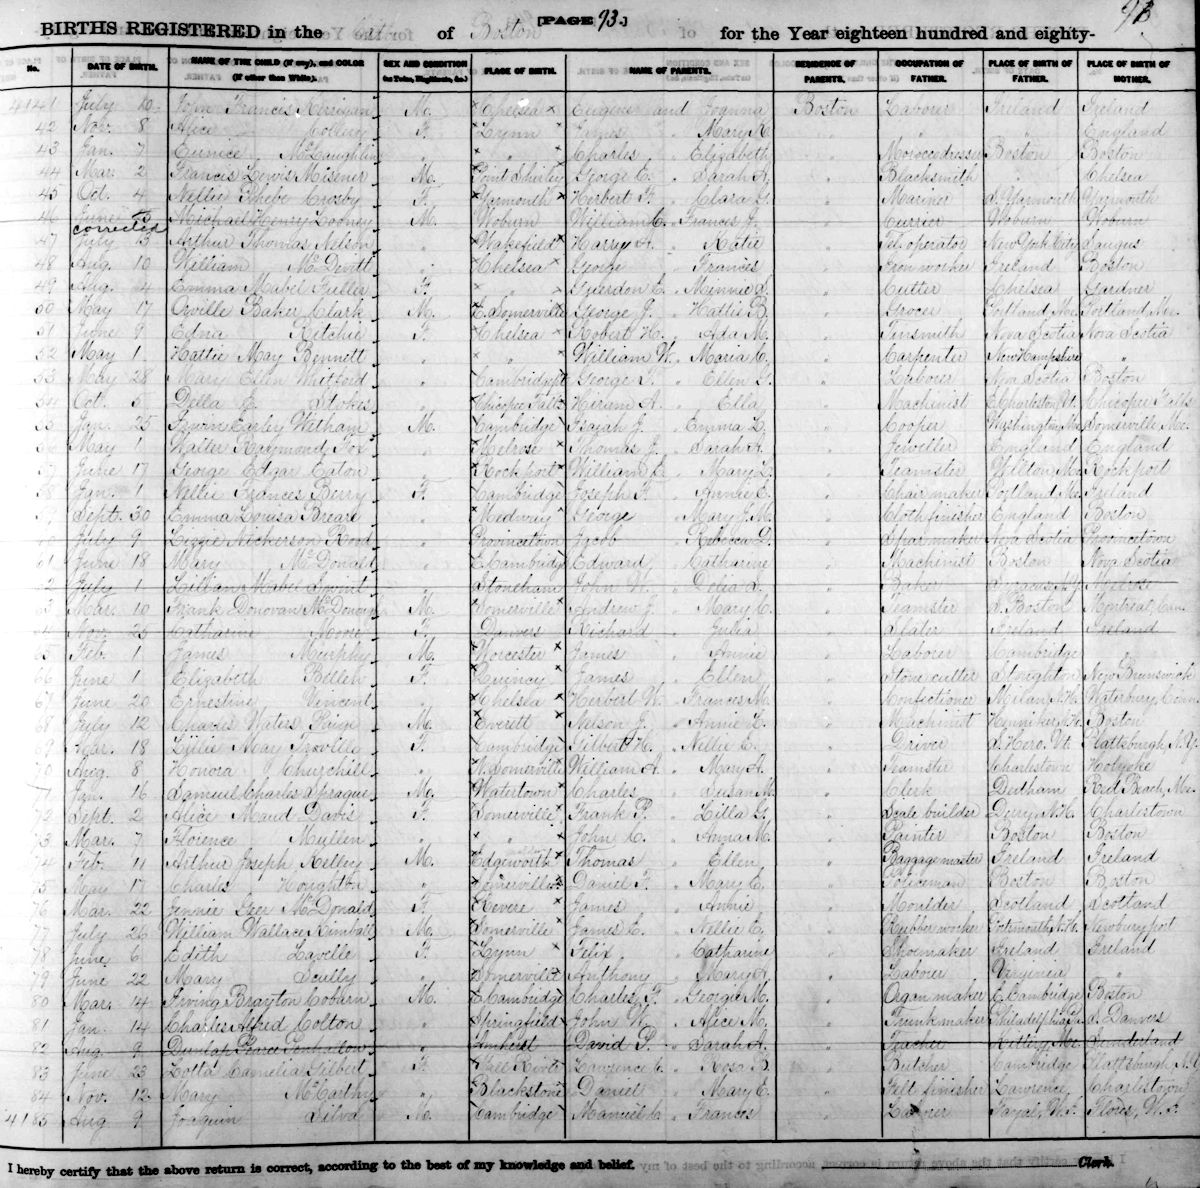 [PAGE 93.]
93
BIRTHS REGISTERED in the City of Boston for the Year eighteen hundred and eighty-
No. DATE OF BIRTH. NAME OF THE CHILD (if any), and COLOR (if other than White). SEX AND CONDITION (as Twins, Illegitimate, &c.) PLACE OF BIRTH. NAME OF PARENTS. RESIDENCE OF PARENTS. OCCUPATION OF FATHER. PLACE OF BIRTH OF FATHER. PLACE OF BIRTH OF MOTHER.
4141 July 10 John Francis Kerrigan M. Chelsea × Eugene and Joanna Boston Laborer Ireland Ireland
42 Nov. 8 Alice F. × Lynn × James " Mary K. " " " England
43 Jan. 7 Eunice McLaughlin " × " × Charles " Elizabeth " Moroccodresser Boston Boston
44 Mar. 2 Francis Lewis Misener M. × Point Shirley George C. " Sarah A. " Blacksmith " Chelsea
45 Oct. 4 Nellie Phebe Crosby F. × Yarmouth × Herbert F. " Clara G. " Mariner S. Yarmouth Yarmouth
46 June Michael Henry Looney M. Woburn William C. " Frances J. " Currier Woburn Woburn
corrected
47 July 13 Arthur Thomas Nelson " × Wakefield × Harry A. " Katie " Tel. operator New York City Saugus
48 Aug. 10 William McDevitt " × Chelsea × George " Frances " Iron worker Ireland Boston
49 Aug. 4 Emma Mabel Fuller F. × " × Guerdon E. " Minnie S. " Cutter Chelsea Gardner
50 May 17 Orville Baker Clark M. × E. Somerville × George J. " Hattie B. " Grocer Portland Me. Portland, Me.
51 June 9 Edna Ritchie F. × Chelsea × Robert H. " Ada M. " Tinsmith Nova Scotia Nova Scotia
52 May 1 Hattie May Bennett " × " × William W. " Maria C. " Carpenter New Hampshire "
53 May 28 Mary Ellen Whitford " × Cambridgept George T. " Ellen G. " Laborer Nova Scotia Boston
54 Oct. 5 Della E. Stokes " × Chicopee Falls × Hiram A. " Ella " Machinist E. Charleston Vt. Chicopee Falls
55 Jan. 25 Irwin Earley Witham M. × Cambridge × Isaiah J. " Emma L. " Cooper Washington Me. Somerville, Me.
56 May 1 Walter Raymond Fox " × Melrose × Thomas J. " Sarah A. " Jeweller England England
57 June 17 George Edgar Eaton " × Rockport × William L. " Mary L. " Teamster Wilton Me. Rockport
58 Jan. 1 Nellie Frances Berry F. × Cambridge × Joseph F. " Annie E. " Chair maker Portland Me. Ireland
59 Sept. 30 Emma Louisa Breare " × Medway × George " Mary J. M. " Cloth finisher England Boston
60 July 9 Lizzie Nickerson Rood " Provincetown Jacob " Rebecca D. " Spar maker Nova Scotia Provincetown
61 June 18 Mary McDonald " × E. Cambridge Edward " Catharine " Machinist Boston Nova Scotia
62 July 1 Lillian Mabel " Stoneham John W. " Delia S. " Baker Syracuse, N.Y. Melrose
63 Mar. 10 Frank Donovan McDonough M. × Somerville × Andrew J. " Mary C. " Teamster S. Boston Montreal, Can.
64 Nov. 25 Catharine Moore F. Danvers Richard " Julia " Slater Ireland Ireland
65 Feb. 1 James Murphy M. × Worcester × James " Annie " Laborer Cambridge "
66 June 1 Elizabeth Bellen F. × Quincy × James " Ellen " Stone cutter Stoughton New Brunswick
67 June 20 Ernestine Vincent " × Chelsea × Herbert W. " Frances M. " Confectioner Milan N.H. Waterbury, Conn.
68 July 12 Charles Waters Paige M. × Everett × Nelson J. " Annie E. " Machinist Henniker, N.H. Boston
69 Mar. 18 Lillie May F. × Cambridge × Gilbert H. " Nellie E. " Driver S. Hero. Vt. Plattsburgh, N.Y.
70 Aug. 8 Honora J. Churchill " × N. Somerville × William A. " Mary A. " Teamster Charlestown Holyoke
71 Jan. 16 Samuel Charles Sprague M. × Watertown × Charles " Susan M. " Clerk Dedham Red Beach, Me.
72 Sept. 2 Alice Maud Davis F. × Somerville × Frank P. " Lilla G. " Scale builder Derry N.H. Charlestown
73 Mar. 7 Florence Mullen " × " × John C. " Anna M. " Painter Boston Boston
74 Feb. 11 Arthur Joseph Kelley M. × Edgeworth × Thomas " Ellen " Baggage master Ireland Ireland
75 May 17 Charles Houghton " × Somerville × Daniel F. " Mary E. " Policeman Boston Boston
76 Mar. 22 Jennie Geer McDonald F. × Revere × James " Annie " Moulder Scotland Scotland
77 July 26 William Wallace Kimball M. × Somerville × James C. " Nellie E. " Rubber worker Portsmouth N.H. Newburyport
78 June 6 Edith Laville F. × Lynn × Felix " Catharine " Shoemaker Ireland Ireland
79 June 22 Mary Scully " × Somerville × Anthony " Mary A. " Laborer Virginia "
80 Mar. 14 Irving Brayton Coburn M. × E. Cambridge × Charles F. " Georgie M. " Organ maker E. Cambridge Boston
81 Jan. 14 Charles Alfred Colton " × Springfield × John W. " Alice M. " Trunk maker Philadelphia Pa. S. Danvers
82 Aug. 9 Dunlap Pearce Penhallow " Amherst David P. " Sarah A. " Teacher Kittery Me. Sunderland
83 June 23 Lotta Camelia Gilbert F. × Fall River × Lawrence C. " Rosa B. " Butcher Cambridge Plattsburgh, N.Y.
84 Nov. 12 Mary McCarthy " × Blackstone × Daniel " Mary E. " Felt finisher Lawrence Charlestown
4185 Aug 9 Joaquin Silva M. × Cambridge × Manuel C. " Frances " Fayal, W.I. Flores, W.I.
I hereby certify that the above return is correct, according to the best of my knowledge and belief. Clerk.